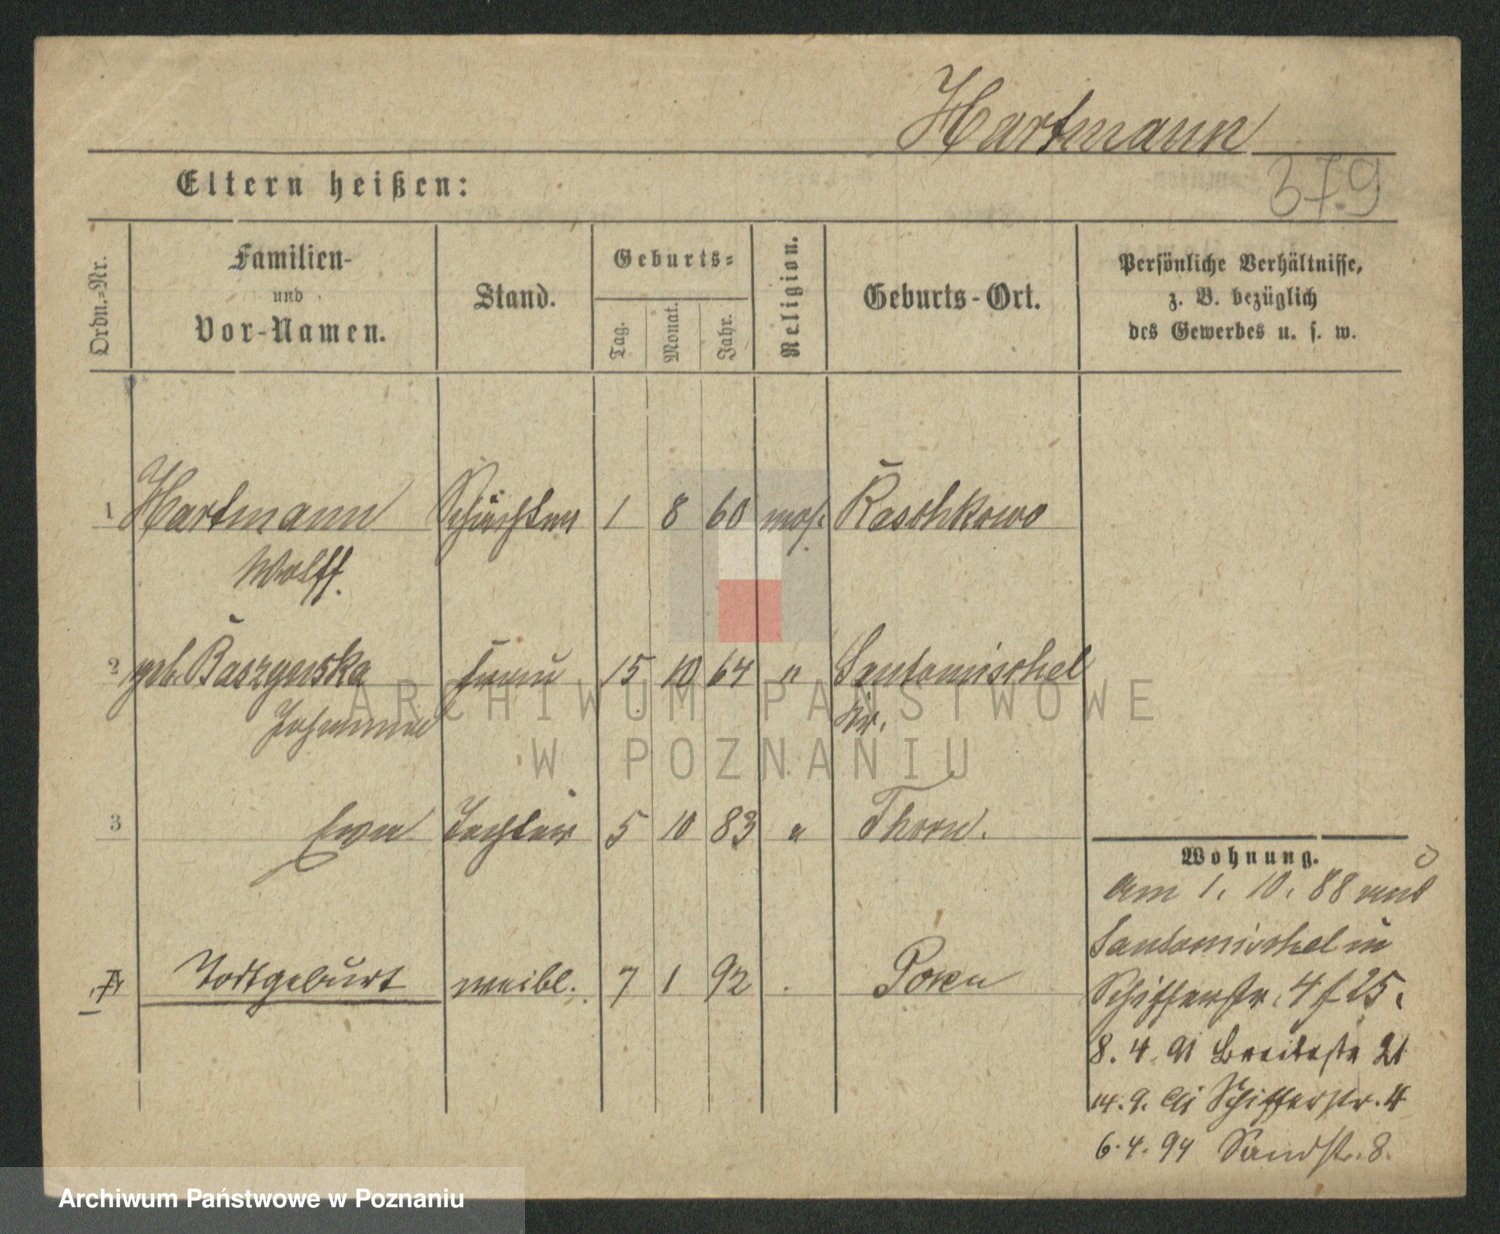 Hartmann
379
Eltern heißen:
Ordn.-Nr.
Familien-
und
Vor-Namen.
Stand.
Geburts-
Tag.
Monat.
Jahr.
Religion.
Geburts-Ort.
Persönliche Verhältnisse,
z. B. bezüglich
des Gewerbes u. s. w.
1 Hartmann Schächter 1 8 60 mos. Raschkowo
Wolff.
2 geb. Baszynska Frau 15 10 64 " Santomischel
Johanna Kr.
3 Ewa Tochter 5 10 83 " Thorn.
Wohnung.
am 1. 10. 88 aus
Santomischel in
4 Todtgeburt weibl. 7 1 92 . Posen
Schifferstr. 4 f 25.
8. 4. 91 Breitestr 21
14. 9. 91 Schifferstr. 4
6. 4. 94 Sandstr. 8.
ARCHIWUM PAŃSTWOWE
W POZNANIU
Archiwum Państwowe w Poznaniu